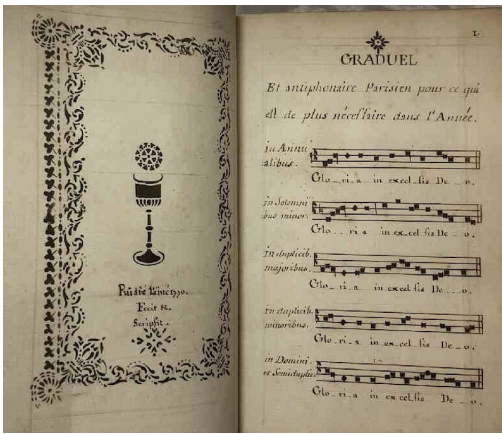 Fecit et
Scripsit.
1.
GRADUEL
Et antiphonaire Parisien pour ce qui
est de plus nécessaire dans l'Année.
in Annu
alibus.
Glo_ri_a in excel_sis De_o.
in Solemni
bus minor.
Glo_ri_a in ex_cel_sis De_o.
in duplicib.
majoribus.
Glo_ri_a in ex_cel_sis De_o.
in duplicib.
minoribus.
Glo_ri_a in ex_cel_sis De_o.
in Domini.
et Semiduplic.
Glo_ri_a in ex_cel_sis De_o.